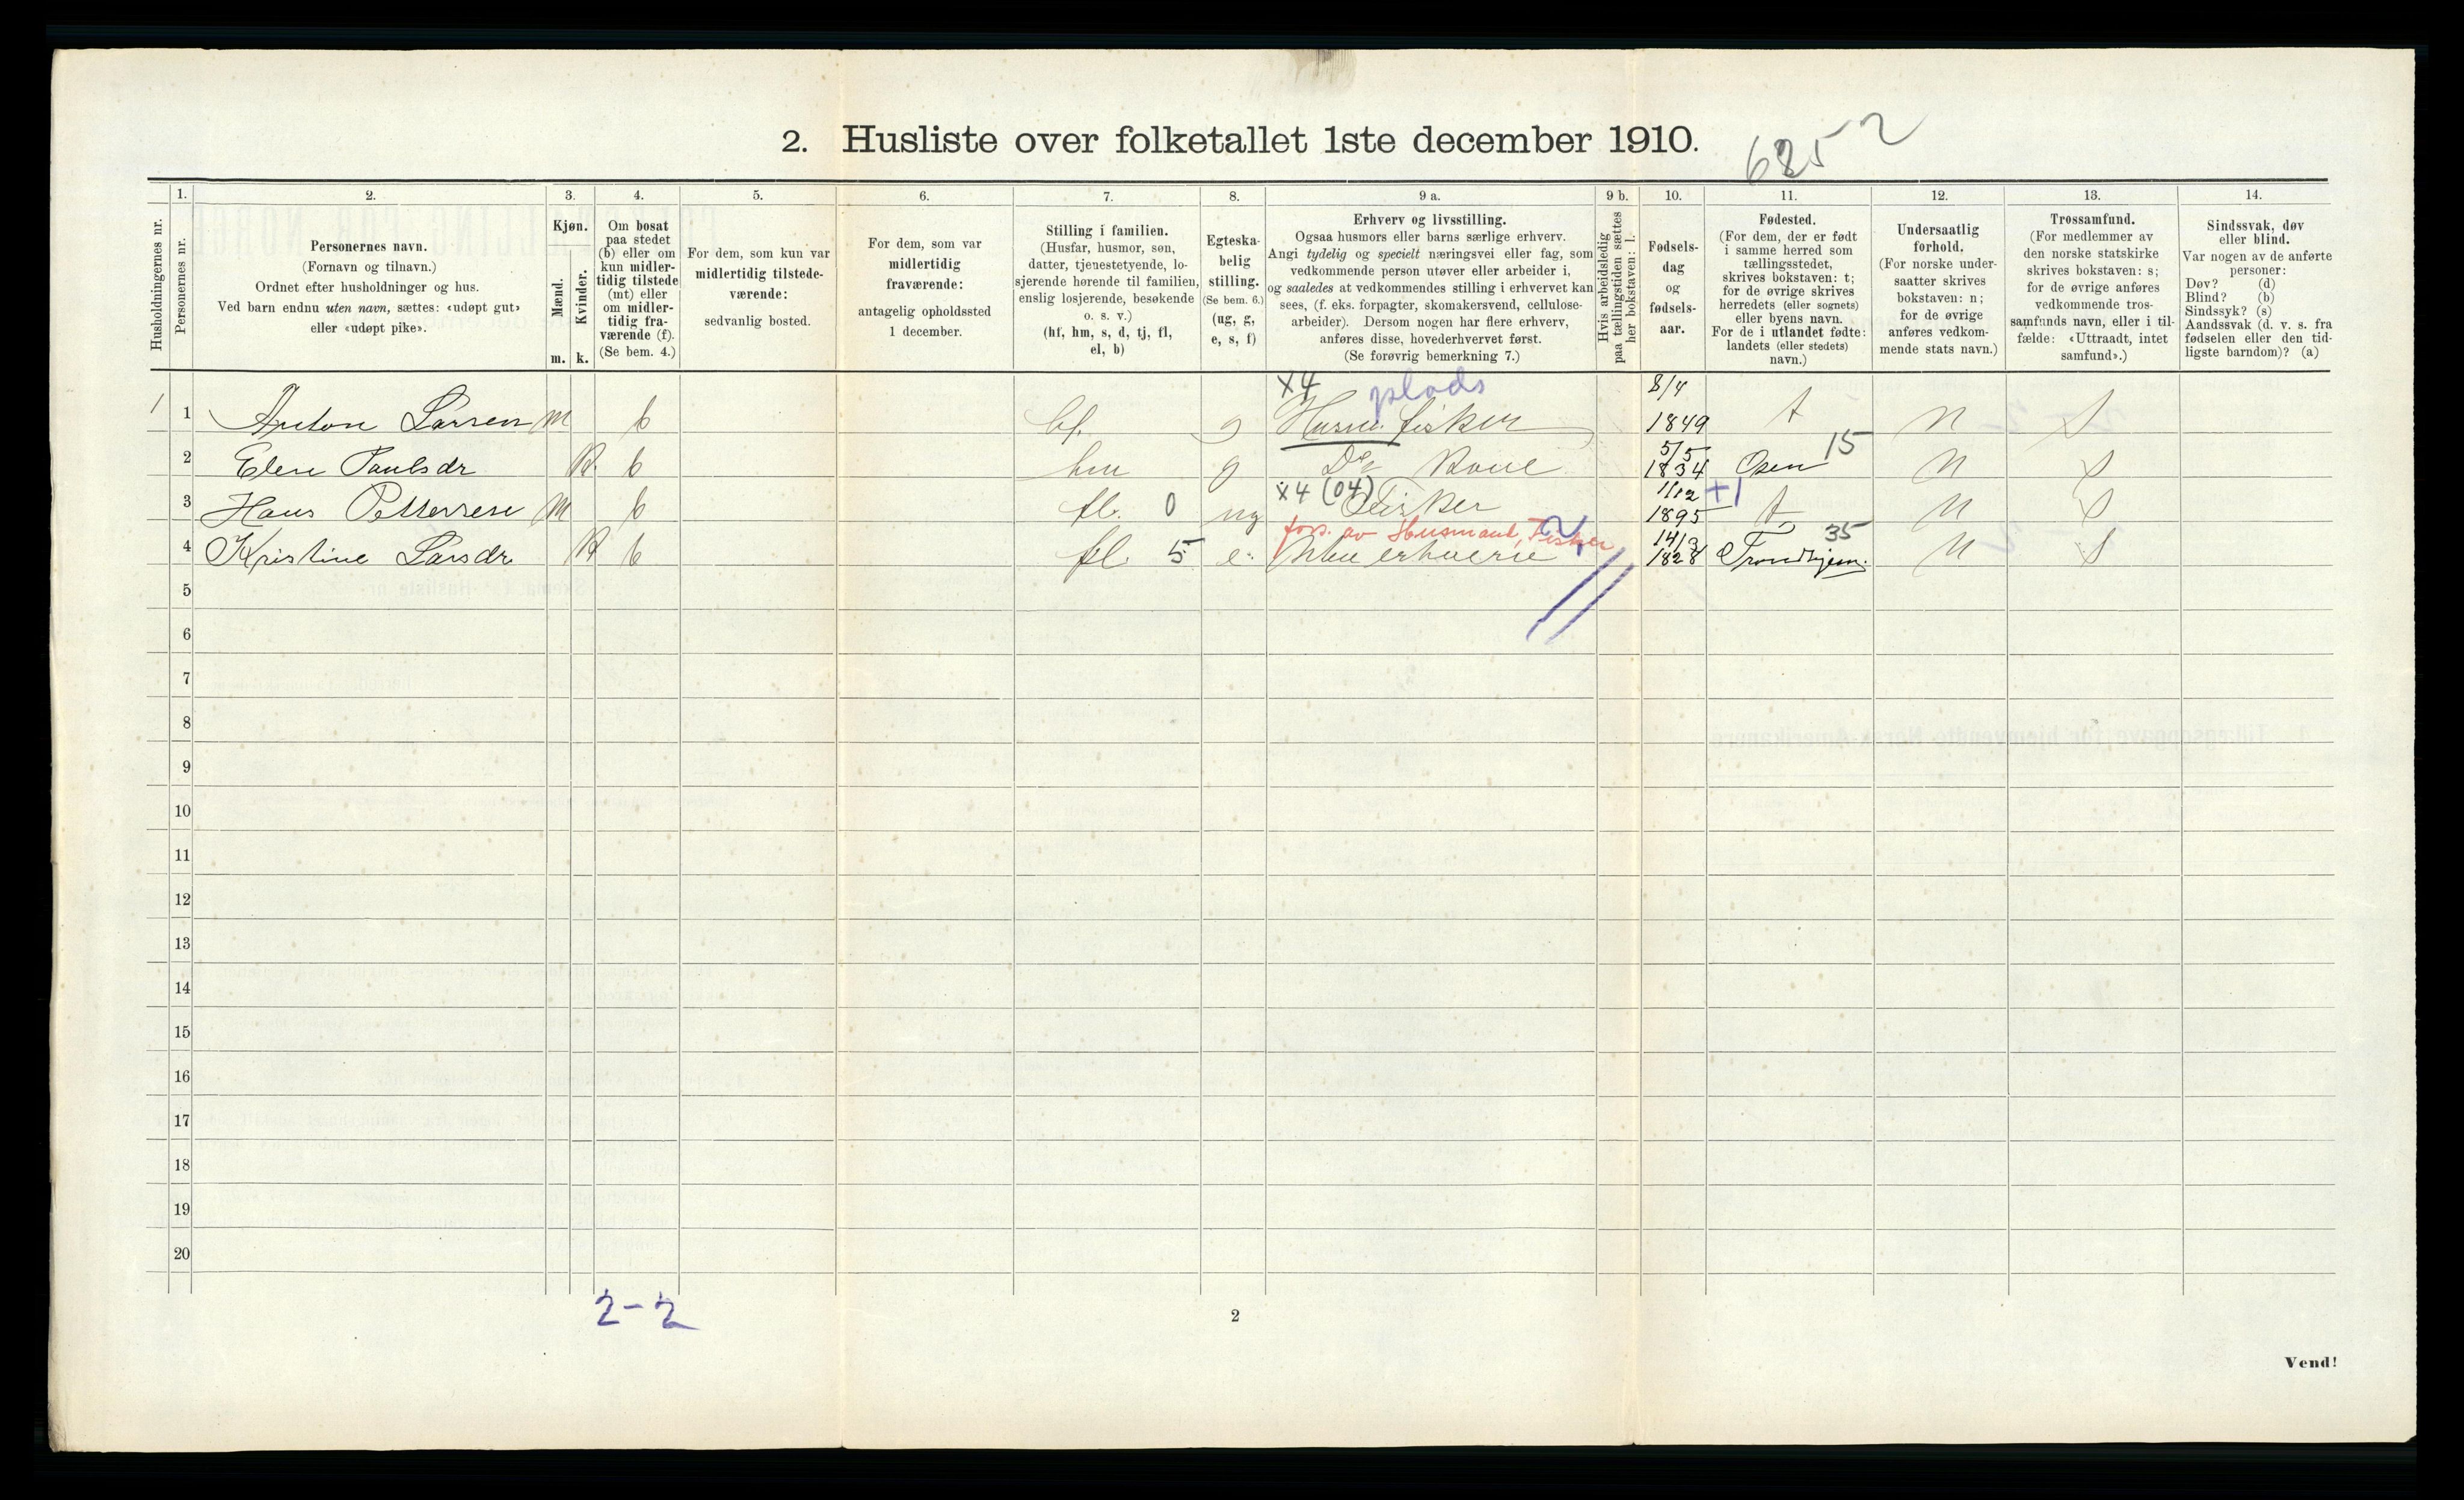 2. Husliste over folketallet 1ste december 1910.
6252
Husholdningernes nr.
1.
Personernes nr.
2.
Personernes navn.
(Fornavn og tilnavn.)
Ordnet efter husholdninger og hus.
Ved barn endnu uten navn, sættes: «udøpt gut»
eller «udøpt pike».
3.
Kjøn.
Mænd.
Kvinder.
m. k.
4.
Om bosat
paa stedet
(b) eller om
kun midler-
tidig tilstede
(mt) eller
om midler-
tidig fra-
værende (f).
(Se bem. 4.)
5.
For dem, som kun var
midlertidig tilstede-
værende:
sedvanlig bosted.
6.
For dem, som var
midlertidig
fraværende:
antagelig opholdssted
1 december.
7.
Stilling i familien.
(Husfar, husmor, søn,
datter, tjenestetyende, lo-
sjerende hørende til familien,
enslig losjerende, besøkende
o. s. v.)
(hf, hm, s, d, tj, fl,
el, b)
8.
Egteska-
belig
stilling.
(Se bem. 6.)
(ug, g,
e, s, f)
9 a.
Erhverv og livsstilling.
Ogsaa husmors eller barns særlige erhverv.
Angi tydelig og specielt næringsvei eller fag, som
vedkommende person utøver eller arbeider i,
og saaledes at vedkommendes stilling i erhvervet kan
sees, (f. eks. forpagter, skomakersvend, cellulose-
arbeider). Dersom nogen har flere erhverv,
anføres disse, hovederhvervet først.
(Se forøvrig bemerkning 7.)
9 b.
Hvis arbeidsledig
paa tællingstiden sættes
her bokstaven: l.
10.
Fødsels-
dag
og
fødsels-
aar.
11.
Fødested.
(For dem, der er født
i samme herred som
tællingsstedet,
skrives bokstaven: t;
for de øvrige skrives
herredets (eller sognets)
eller byens navn.
For de i utlandet fødte:
landets (eller stedets)
navn.)
12.
Undersaatlig
forhold.
(For norske under-
saatter skrives
bokstaven: n;
for de øvrige
anføres vedkom-
mende stats navn.)
13.
Trossamfund.
(For medlemmer av
den norske statskirke
skrives bokstaven: s;
for de øvrige anføres
vedkommende tros-
samfunds navn, eller i til-
fælde: «Uttraadt, intet
samfund».)
14.
Sindssvak, døv
eller blind.
Var nogen av de anførte
personer:
Døv? (d)
Blind? (b)
Sindssyk? (s)
Aandssvak (d. v. s. fra
fødselen eller den tid-
ligste barndom)? (a)
x4 plads 8/4
1 1 Anton Larsen m b hf. g Husm. fisker 1849 t n s
5/5 15
2 Elen Paulsdr k b hm g Do Kone 1834 Osen n s
x4 (04) 1/12 +1
3 Hans Pettersen m b fl. 0 ug Fisker 1895 t n s
fors. av Husmand, Fisker 14/3 35
4 Kristine Larsdr k b fl. 5 e. 1828 Trondhjem. n s
5
6
7
8
9
10
11
12
13
14
15
16
17
18
19
20
2-2
2
Vend!